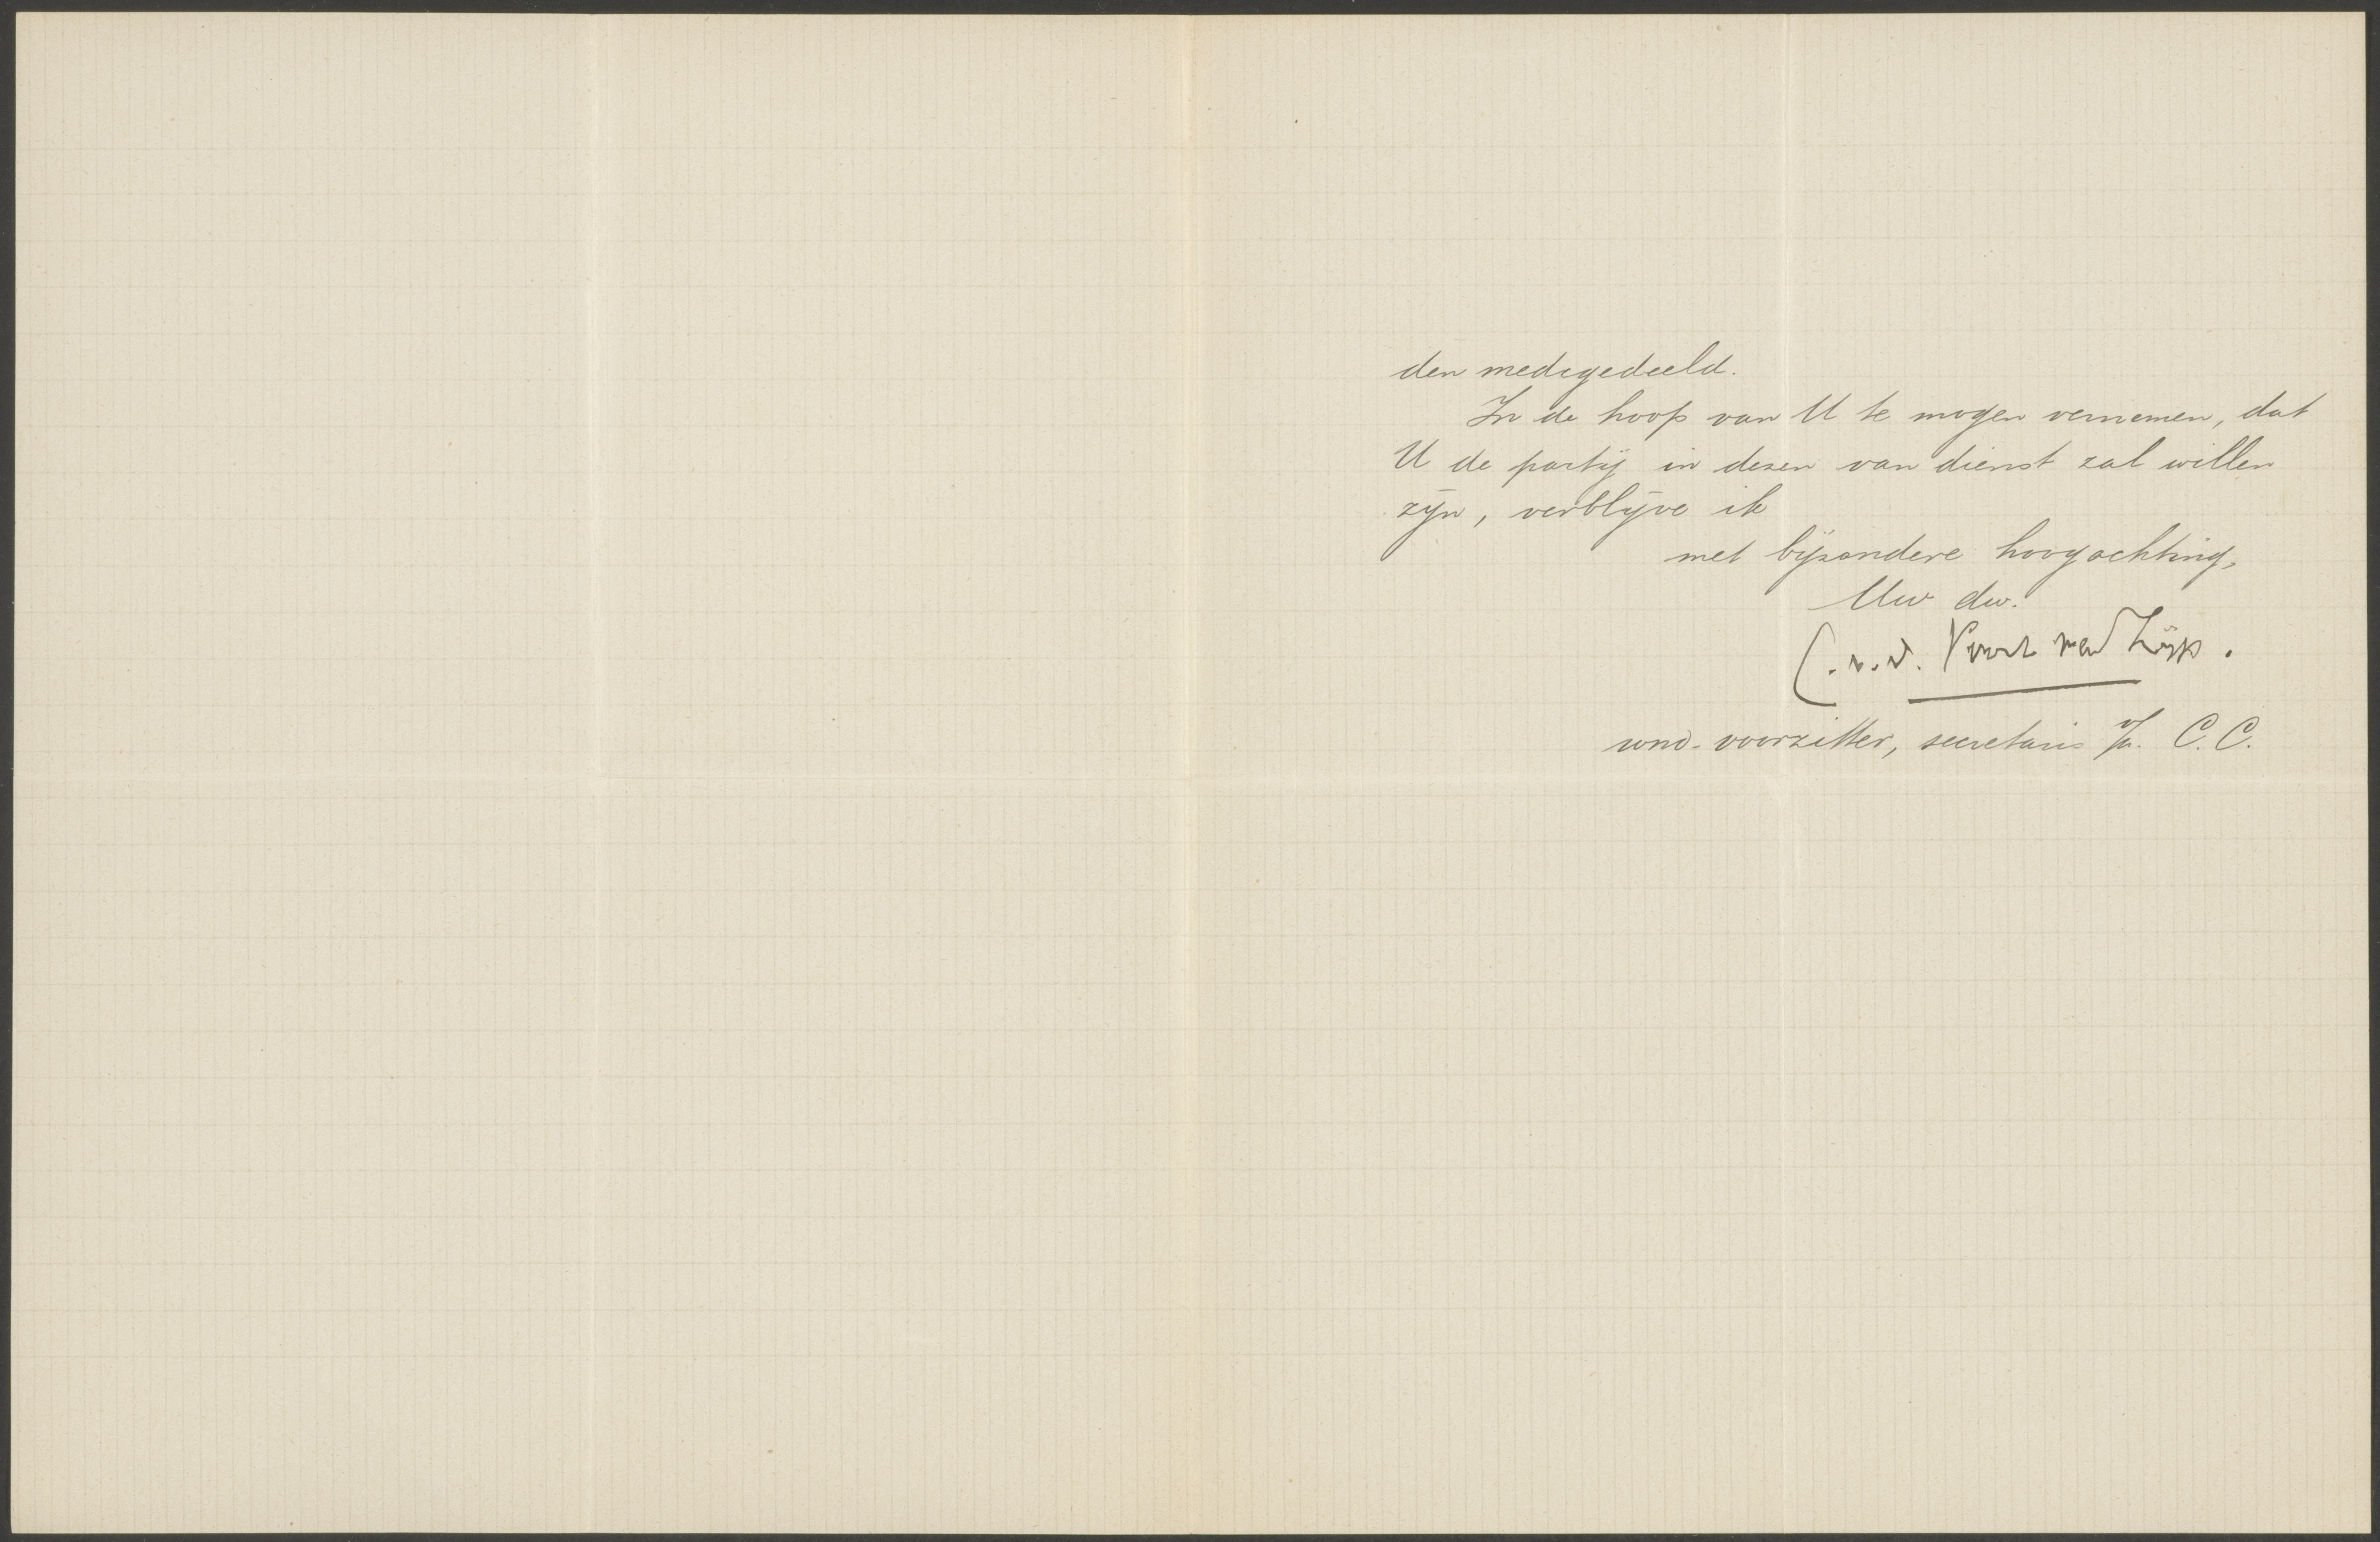 den medegedeeld.
In de hoop van U te mogen vernemen, dat
U de partij in dezen van dienst zal willen
zijn, verblijve ik
met bijzondere hoogachting,
Uw dw.
C. v. d. Voort van Zijp.
wnd. voorzitter, secretaris v/h. C.C.